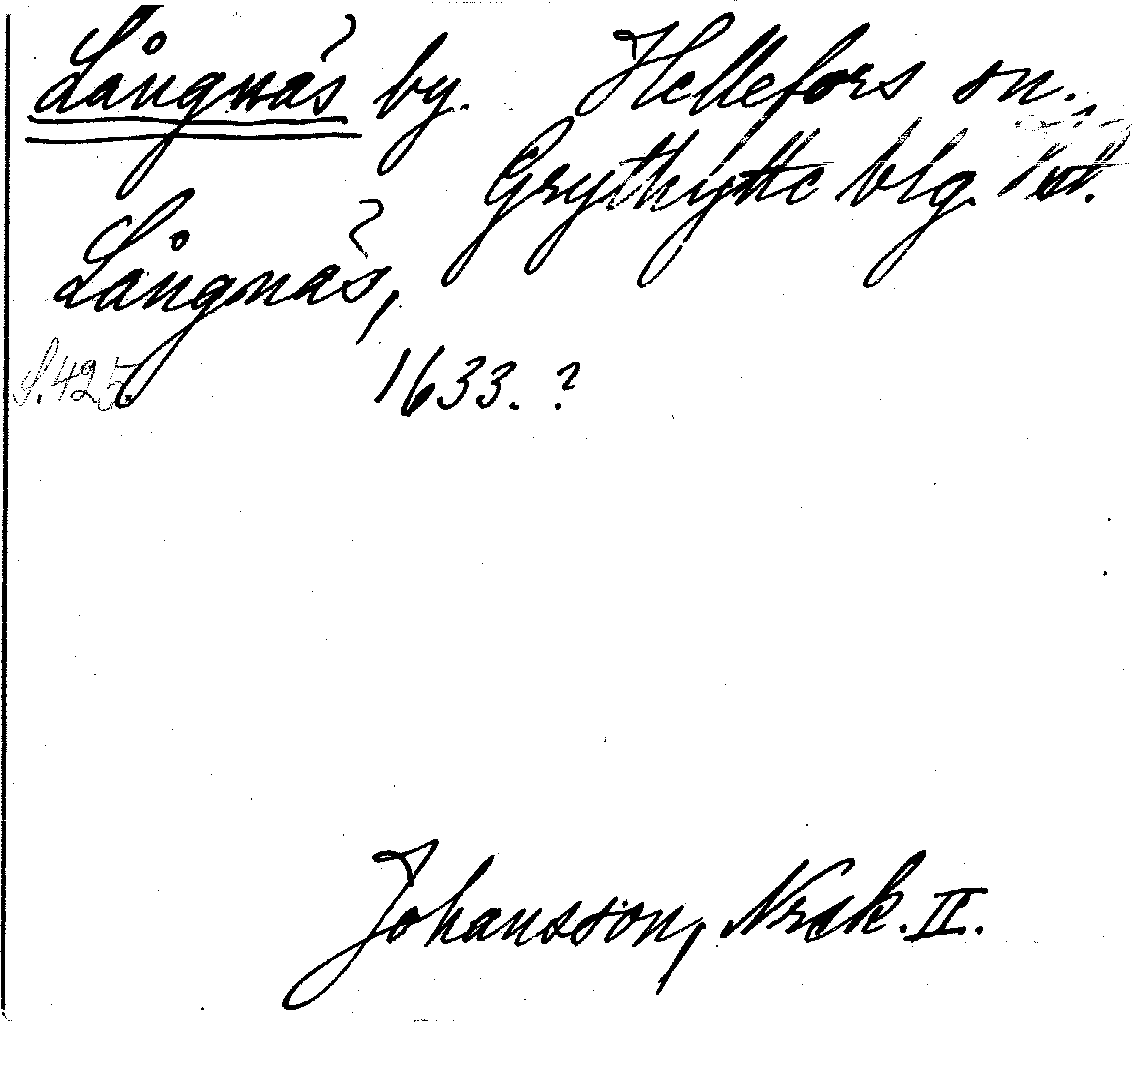 Långnäs by. Hellefors sn.,
Grythytte blg. Vstl.
Långnäs,
S. 425. 1633. ?
Johansson, Nrck. II.